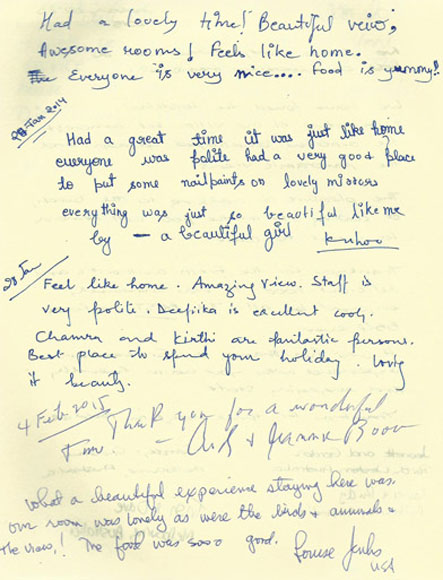 Had a lovely time! Beautiful veiw,
Awesome rooms! Feels like home.
Everyone is very nice.... Food is yummy!!
28 Jan 2014
Had a great time it was just like home
everyone was polite had a very good place
to put some nailpaints on lovely mirrors
everything was just so beautiful like me
by — a beautiful girl Kuhoo
28 Jan
Feel like home. Amazing view. Staff is
very polite. Deepika is excellent cook.
Chamra and Kirthi are fantastic persons.
Best place to spend your holiday. Loving
it beauty.
4 Feb 2015
Thank you for a wonderful
Time — &
What a beautiful experience staying here was.
our room was lovely as were the birds + animals +
The views! The food was sooo good. Louise
USA